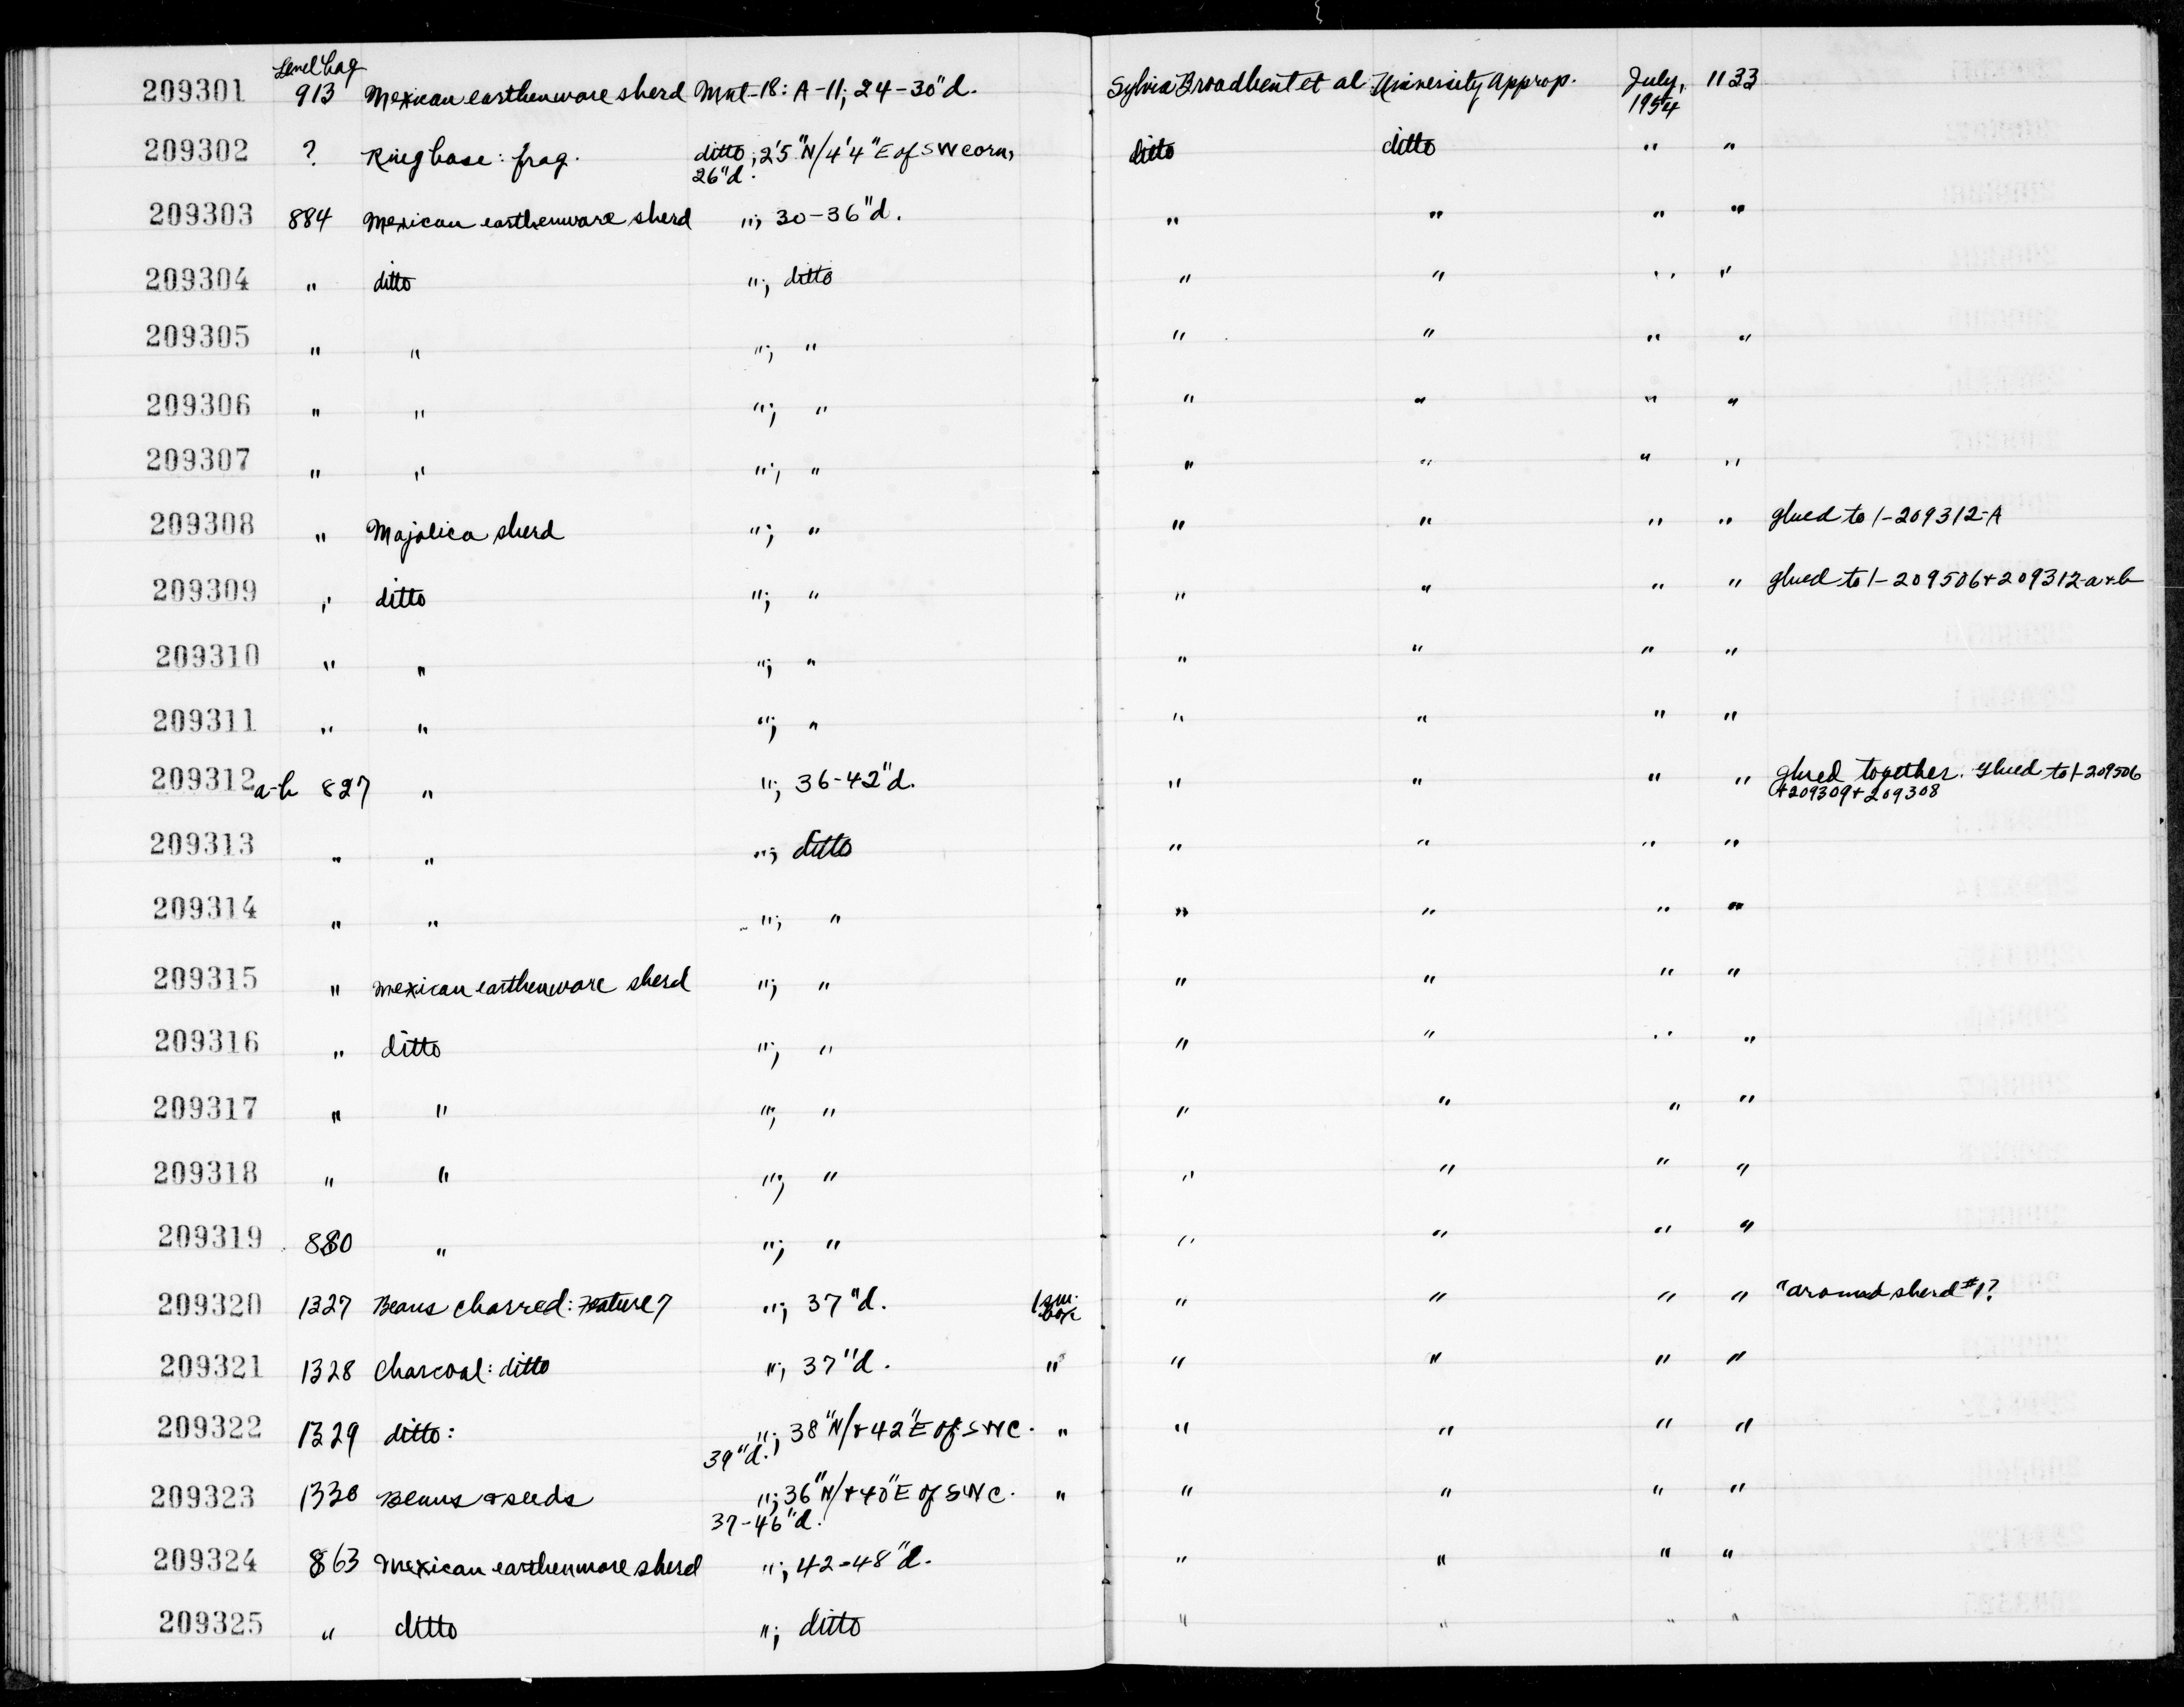 Level bag
209301 913 Mexican earthenware sherd Mnt-18: A-11; 24-30"d. Sylvia Broadbent et al University Approp. July, 1133
1954
209302 ? Ring base: frag. ditto; 2'5"N/4'4"E of SW corn, ditto ditto " "
26"d.
209303 884 Mexican earthenware sherd "; 30-36"d. " " " "
209304 " ditto "; ditto " " " "
209305 " " "; " " " " "
209306 " " "; " " " " "
209307 " " "; " " " " "
209308 " Majolica sherd "; " " " " " glued to 1-209312-A
209309 " ditto "; " " " " " glued to 1-209506+209312-a+b
209310 " " "; " " " " "
209311 " " "; " " " " "
209312 a-b 827 " "; 36-42"d. " " " " glued together. Glued to 1-209506
+209309+209308
209313 " " "; ditto " " " "
209314 " " "; " " " " "
209315 " Mexican earthenware sherd "; " " " " "
209316 " ditto "; " " " " "
209317 " " "; " " " " "
209318 " " "; " " " " "
209319 880 " "; " " " " "
209320 1327 Beans charred: Feature 7 "; 37"d. 1 sm. box " " " " "around sherd #1?
209321 1328 Charcoal: ditto "; 37"d. " " " " "
209322 1329 ditto: "; 38"N/+42"E of SWC. " " " " "
39"d.
209323 1330 Beans & seeds "; 36"N/+40"E of SWC. " " " " "
37-46"d.
209324 863 Mexican earthenware sherd "; 42-48"d. " " " "
209325 " ditto "; ditto " " " "